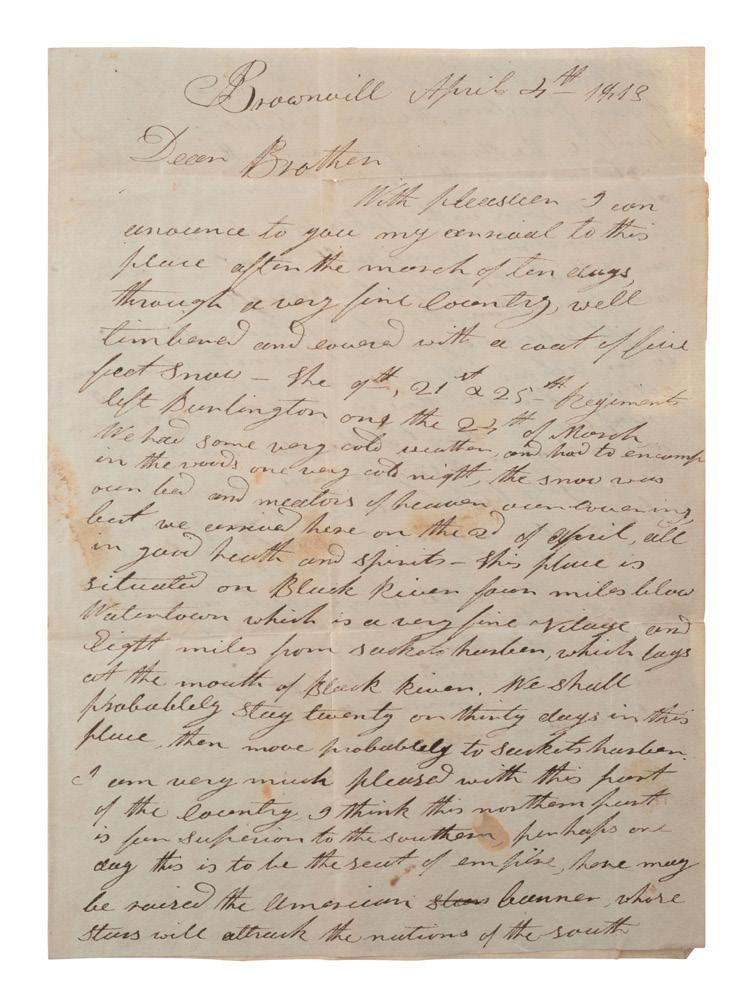 Brownvill April 4th 1813
Dear Brother
With pleasuer I can
anounce to you my arrival to this
place after the march of ten days,
through a very fine Country, well
timbered and covered with a coat of five
feet Snow - the 9th, 21st & 25th Regiments
left Burlington on the 24th of March
We had some very cold weather, and had to encamp
in the woods one very cold night, the snow was
our bed and meators of heaven our covering,
but we arrived here on the 2d of April, all
in good heath and spirits - this place is
situated on Black River four miles blow
Watertown which is a very fine village and
Eight miles from sackets harber, which lays
at the mouth of Black River. We shall
probablely stay twenty or thirty days in this
place, then move probablely to sackets harber.
I am very much pleased with this part
of the Country I think this northern part
is far superior to the southern, perhaps one
day this is to be the seat of empire, here may
be raised the American stars banner, whose
stars will attrack the nations of the south